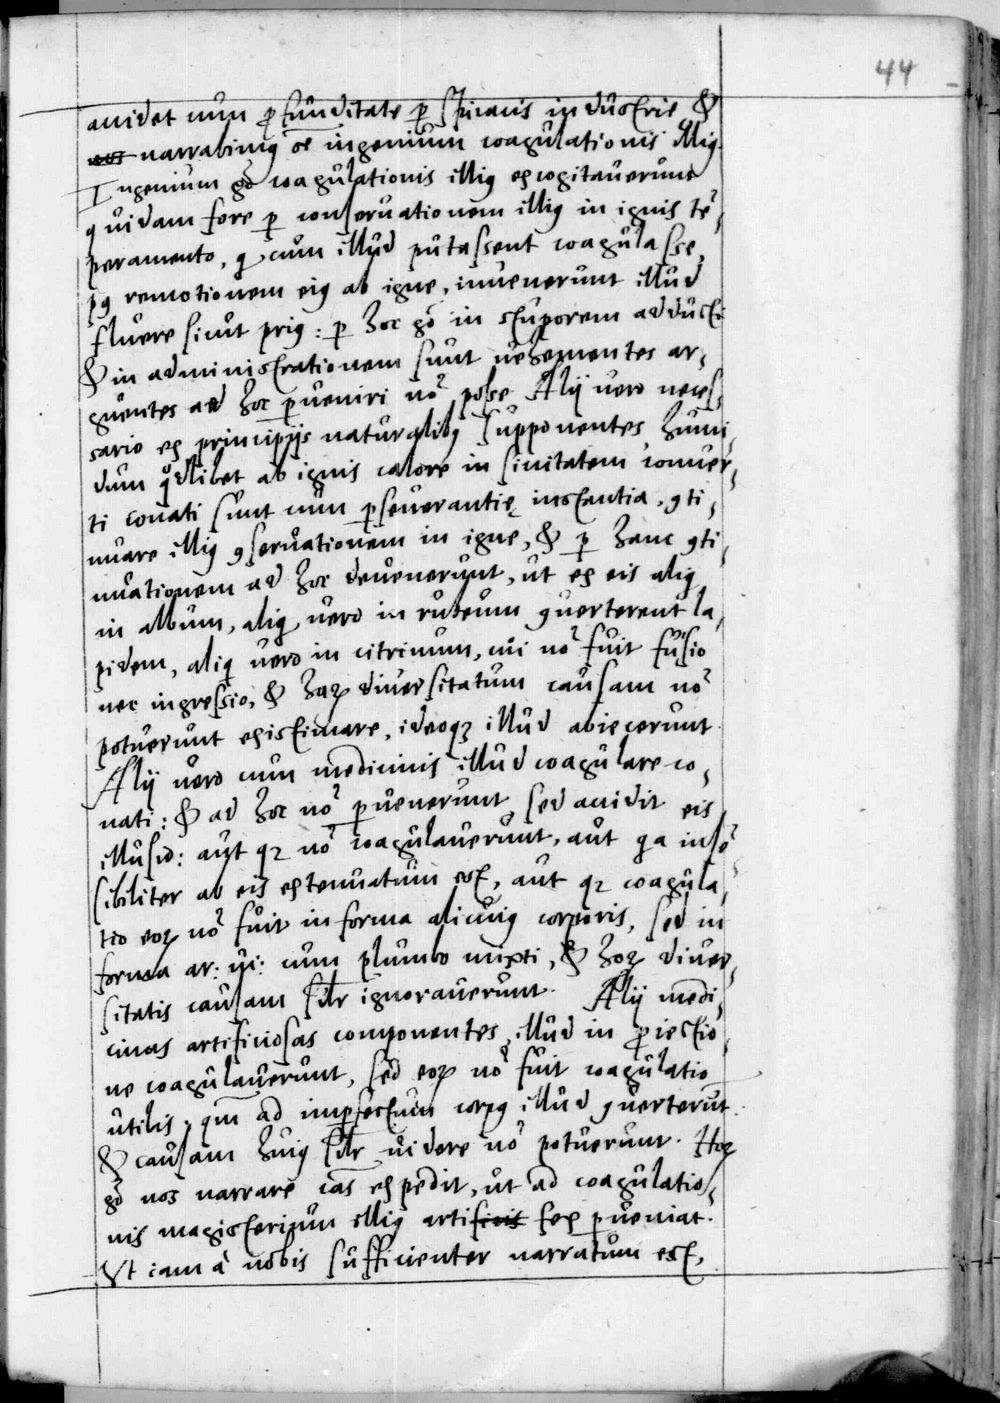 44
accidet cum ꝓfunditate ꝑspicacis industrie &
narrabimꝰ oē ingenium coagulationis illiꝰ.
Ingenium gō coagulationis illiꝰ excogitaverunt
quidam fore ꝑ conservationem illiꝰ in ignis tē,
peramento, qi cum illud putassent coagulasse,
pꝰ remotionem eiꝰ ab igne, invenerunt illud
fluere sicut priꝰ: ꝑ hoc gō in stuporem adducti
& in administrationem sunt vehementes ar,
guentes ad hoc ꝑveniri nō posse. Alij vero neces,
sario ex principijs naturalibꝰ supponentes humi,
dum qdlibet ab ignis calore in sicitatem conver,
ti conati sunt cum ꝑseverantię instantia, ꝯti,
nuare illiꝰ ꝯservationem in igne, & ꝑ hanc ꝯti,
nuationem ad hoc devenerunt, ut ex eis aliqi
in album, aliqi vero in rubeum ꝯverterent la,
pidem, aliqi vero in citrinum, cui nō fuit fusio
nec ingressio, & haꝝ diversitatum causam nō
potuerunt existimare, ideoqꝫ illud abiecerunt.
Alij vero cum medicinis illud coagulare co,
nati: & ad hoc nō ꝑvenerunt, sed accidit eis
illusio: aut qꝫ nō coagulaverunt, aut qa insē,
sibiliter ab eis extenuatum est, aut qꝫ coagula,
tio eoꝝ nō fuit in forma alicuiꝰ corporis, sed in
forma ar: vi: cum plumbo mixti, & hoꝝ diver,
sitatis causam silr ignoraverunt. Alij medi,
cinas artificiosas componentes, illud in ꝓiectio,
ne coagulaverunt, sed eoꝝ nō fuit coagulatio
utilis, qm ad imꝑfectum corpꝰ illud ꝯverterūt.
& causam huiꝰ silr videre nō potuerunt. Hoꝝ
gō nos narrare cās expedit, ut ad coagulatio,
nis magisterium illiꝰ artifex ꝑveniat.
Ut iam à nobis sufficienter narratum est,